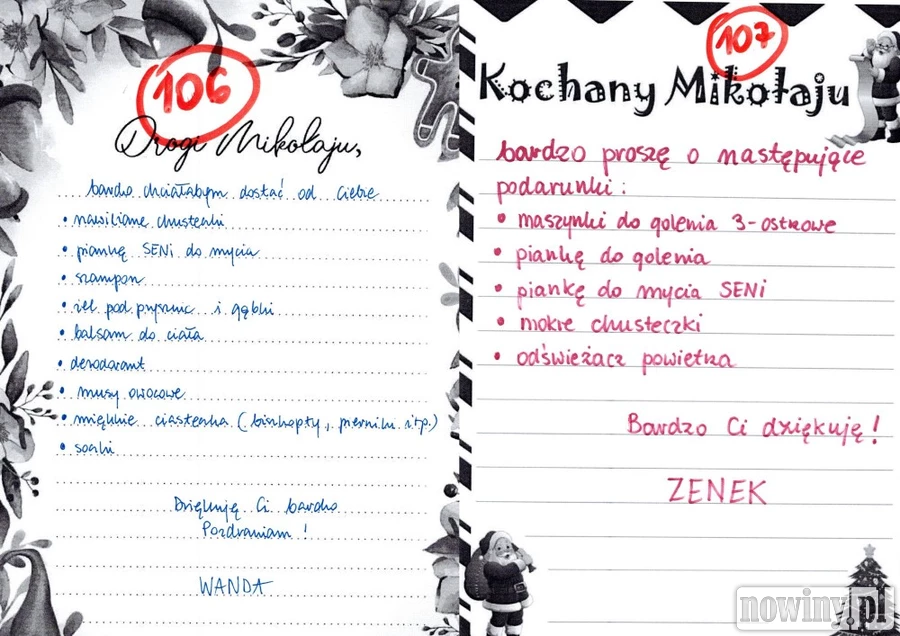 106
Drogi Mikołaju,
bardzo chciałabym dostać od Ciebie
• nawilżane chusteczki
• piankę SENI do mycia
• szampon
• żel pod prysznic i gąbki
• balsam do ciała
• dezodorant
• musy owocowe
• miękkie ciasteczka (biszkopty, pierniki itp.)
• soczki
Dziękuję Ci bardzo
Pozdrawiam !
WANDA
107
Kochany Mikołaju
bardzo proszę o następujące
podarunki :
• maszynki do golenia 3-ostrzowe
• piankę do golenia
• piankę do mycia SENI
• mokre chusteczki
• odświeżacz powietrza
Bardzo Ci dziękuję !
ZENEK
nowiny.pl